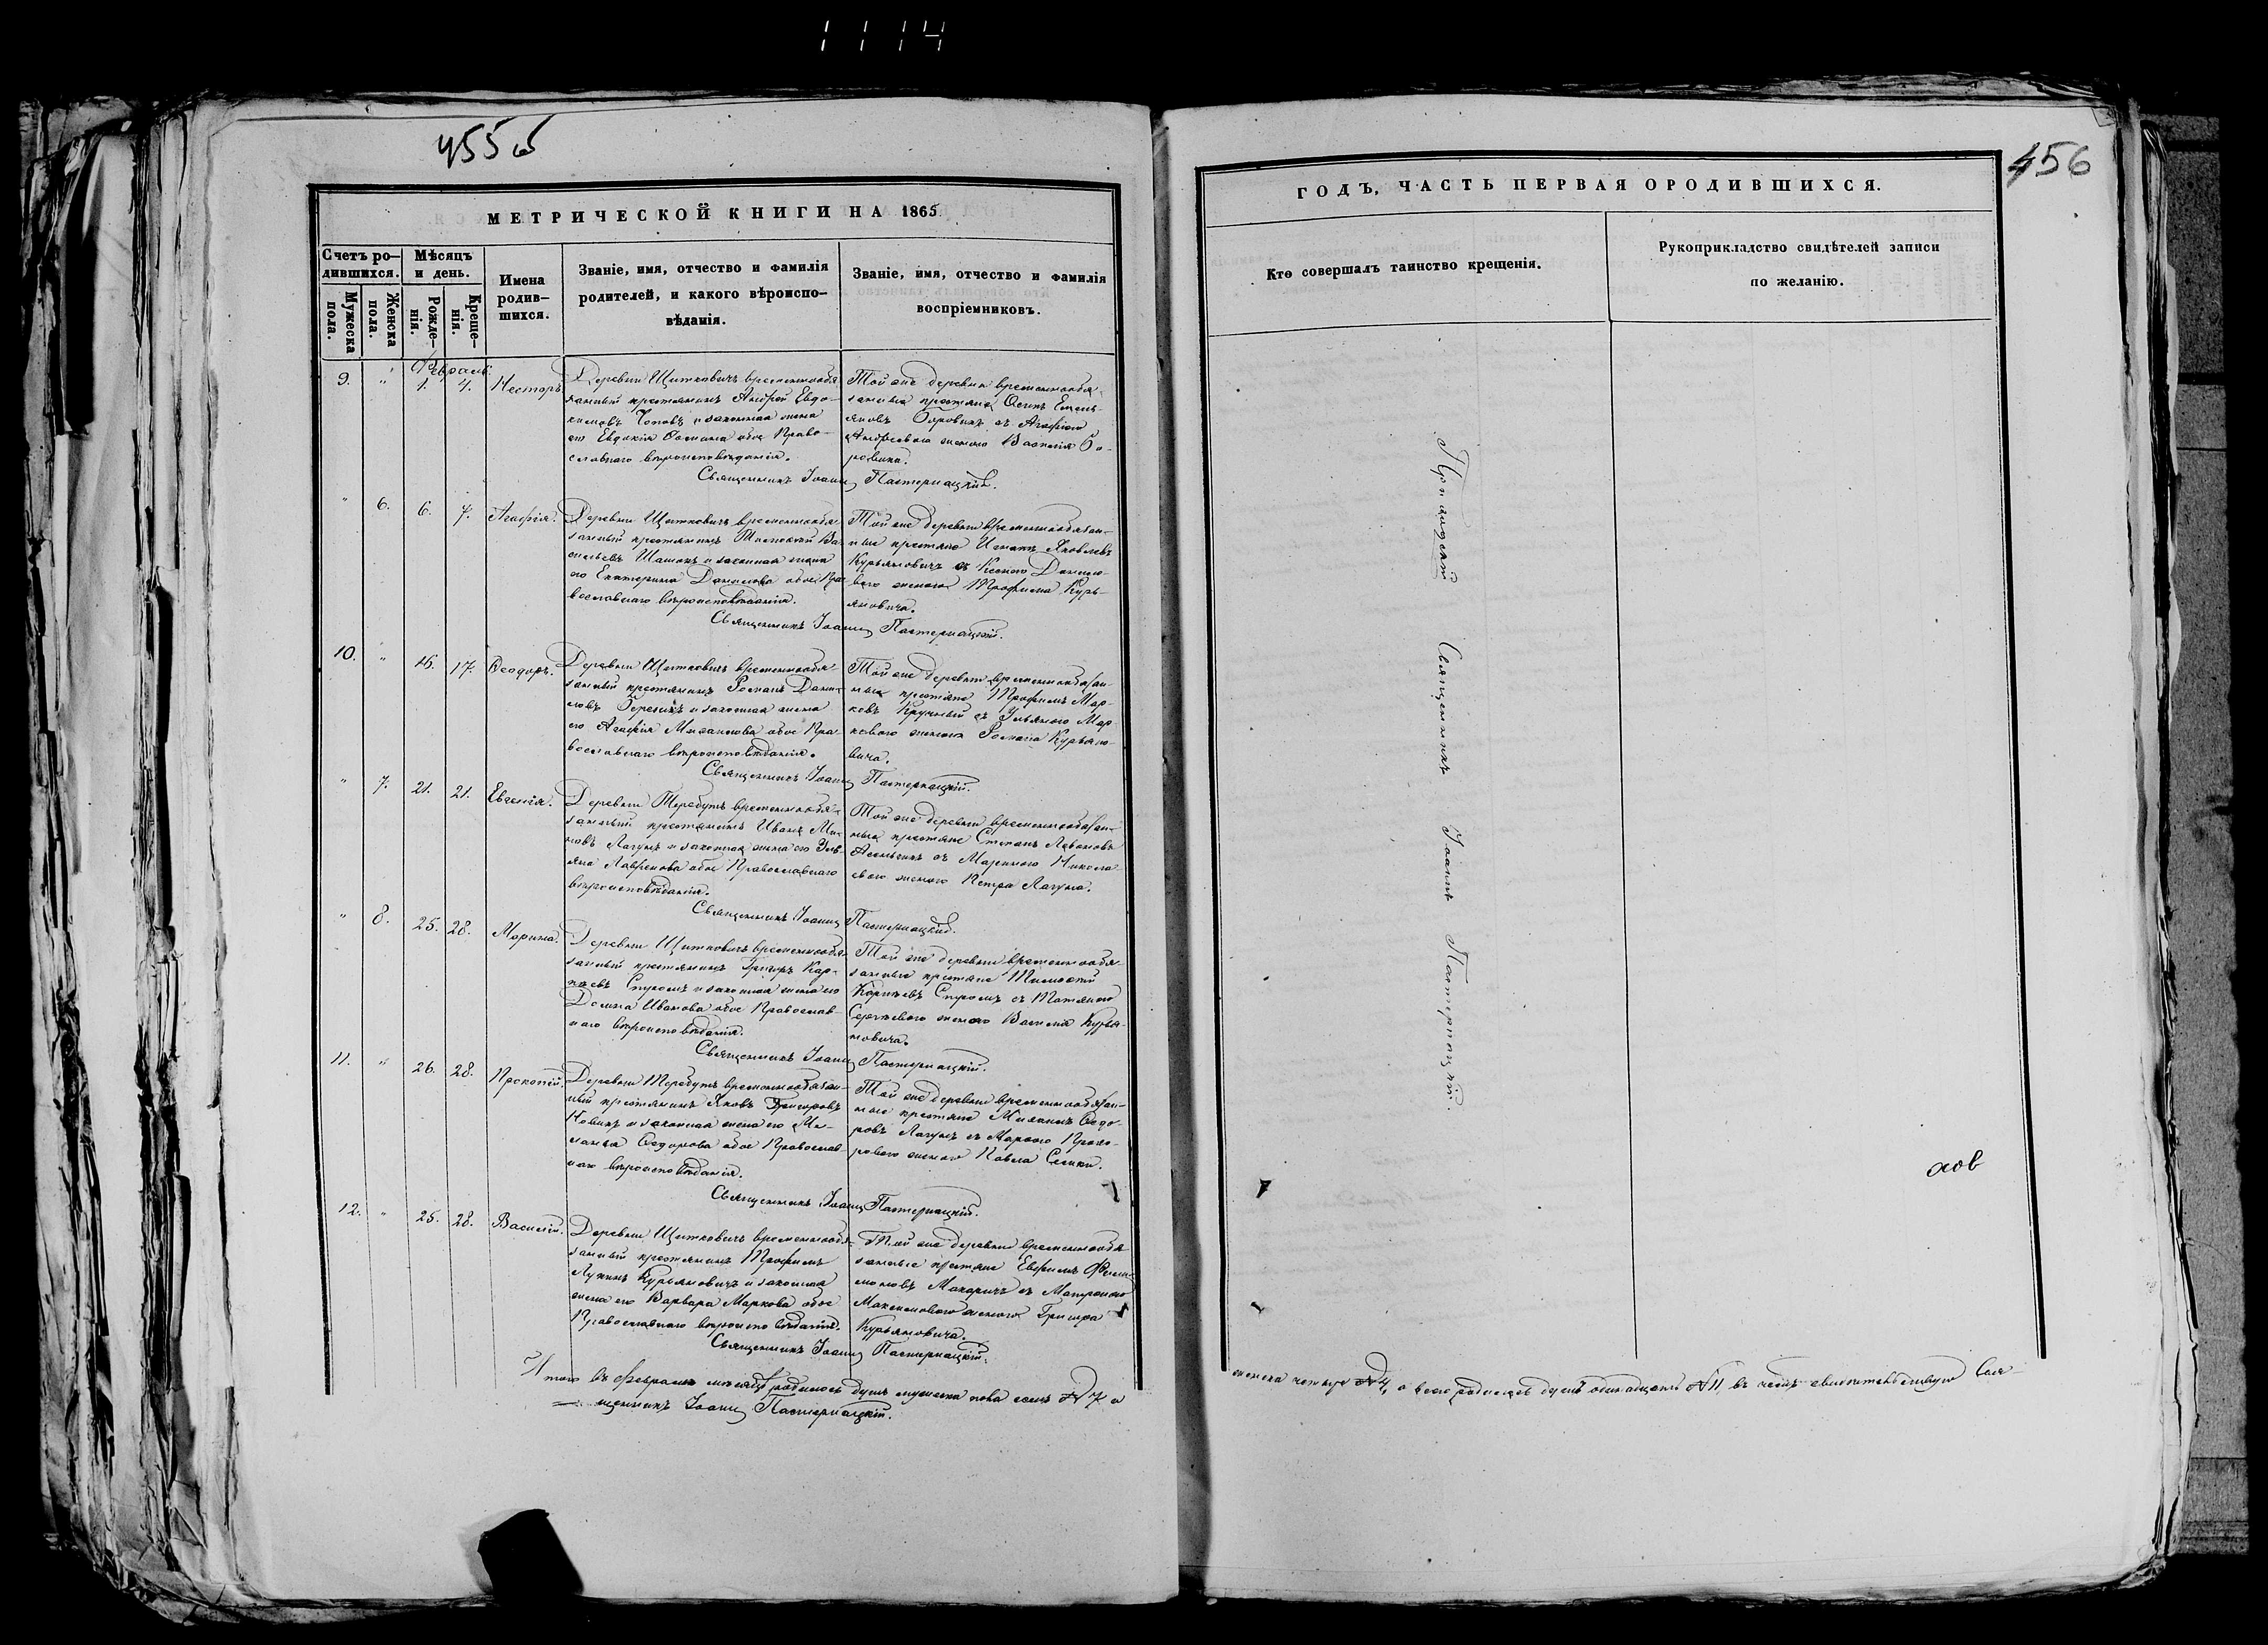 1114
455 об
МЕТРИЧЕСКОЙ КНИГИ НА 1865.
Счетъ ро-
дившихся.
Мужеска
пола.
Женска
пола.
Мѣсяцъ
и день.
Рожде-
нія.
Креще-
нія.
Имена
родив-
шихся.
Званіе, имя, отчество и фамилія
родителей, и какого вѣроиспо-
вѣданія.
Званіе, имя, отчество и фамилія
воспріемниковъ.
Февраль.
9. " 1. 4. Несторъ
Деревни Щитковичъ временнообя-
занный крестьянинъ Андрей Евдо-
кимовъ и законная жена
его Евдокія Фомина обое Право-
славнаго вѣроисповѣданія.
Той же деревни временнообя-
занные крестьяне Осипъ Емель-
яновъ Боровикъ съ Агафіею
Андреевою женою Василія Бо-
ровика.
Священникъ Іоаннъ Пастернацкій.
" 6. 6. 7. Агафія.
Деревни Щитковичъ временнообя-
занный крестьянинъ Тимофей Ва-
сильевъ Шашокъ и законная жена
его Екатерина Данилова обое Пра-
вославнаго вѣроисповѣданія.
Той же деревни временнообязан-
ные крестьяне Игнатъ Яковлевъ
Курьяновичъ съ Ксеніею Данило-
вою женою Трофима Курь-
яновича.
Священникъ Іоаннъ Пастернацкій.
10. " 16. 17. Ѳеодоръ.
Деревни Щитковичъ временнообя-
занный крестьянинъ Романъ Дани-
ловъ и законная жена
его Агафія Михайлова обое Пра-
вославнаго вѣроисповѣданія.
Той же деревни временнообязан-
ные крестьяне Трофимъ Мар-
ковъ Кручный съ Ульяною Мар-
ковою женою Романа Курьяно-
вича.
Священникъ Іоаннъ Пастернацкій.
" 7. 21. 21. Евгенія.
Деревни Теребутъ временнообя-
занный крестьянинъ Иванъ Ми-
новъ Лагунъ и законная жена его Уль-
яна Лаврѣнова обое Православнаго
вѣроисповѣданія.
Той же деревни временнообязан-
ные крестьяне Степанъ Леоновъ
съ Мариною Никола-
евою женою Петра Лагуна.
Священникъ Іоаннъ Пастернацкій.
" 8. 25. 28. Марина.
Деревни Щитковичъ временнообя-
занный крестьянинъ Григоръ Кар-
пѣевъ Стромъ и законная жена его
Домна Иванова обое Православ-
наго вѣроисповѣданія.
Той же деревни временнообя-
занные крестьяне Тимофей
Корнѣевъ Стромъ съ Татьяною
Сергѣевою женою Василія Курья-
новича.
Священникъ Іоаннъ Пастернацкій.
11. " 26. 28. Прокопій.
Деревни Теребутъ временнообязан-
ный крестьянинъ Яковъ Григоровъ
Новикъ и законная жена его Ме-
ланія Ѳедорова обое Православ-
наго вѣроисповѣданія.
Той же деревни временнообязан-
ные крестьяне Ѳедо-
ровъ Лагунъ съ Марѳою Прохо-
ровою женою Павла
Священникъ Іоаннъ Пастернацкій.
12. " 25. 28. Василій.
Деревни Щитковичъ временнообя-
занный крестьянинъ Трофимъ
Лукинъ Курьяновичъ и законная
жена его Варвара Маркова обое
Православнаго вѣроисповѣданія.
Той же деревни временнообя-
занные крестьяне Евфимъ Фили-
моновъ Макаричъ съ Матроною
Максимовою женою Григора
Курьяновича.
Священникъ Іоаннъ Пастернацкій.
Итого въ Февралѣ мѣсяцѣ родилось душъ мужеска пола семь № 7 а
щенникъ Іоаннъ Пастернацкій.
456
ГОДЪ, ЧАСТЬ ПЕРВАЯ ОРОДИВШИХСЯ.
Кто совершалъ таинство крещенія.
Рукоприкладство свидѣтелей записи
по желанію.
Приходскій Священникъ Іоаннъ Пастернацкій.
женска четыре № 4, а всего родилось душъ одинадцать № 11, въ чемъ свидѣтельствую Свя-